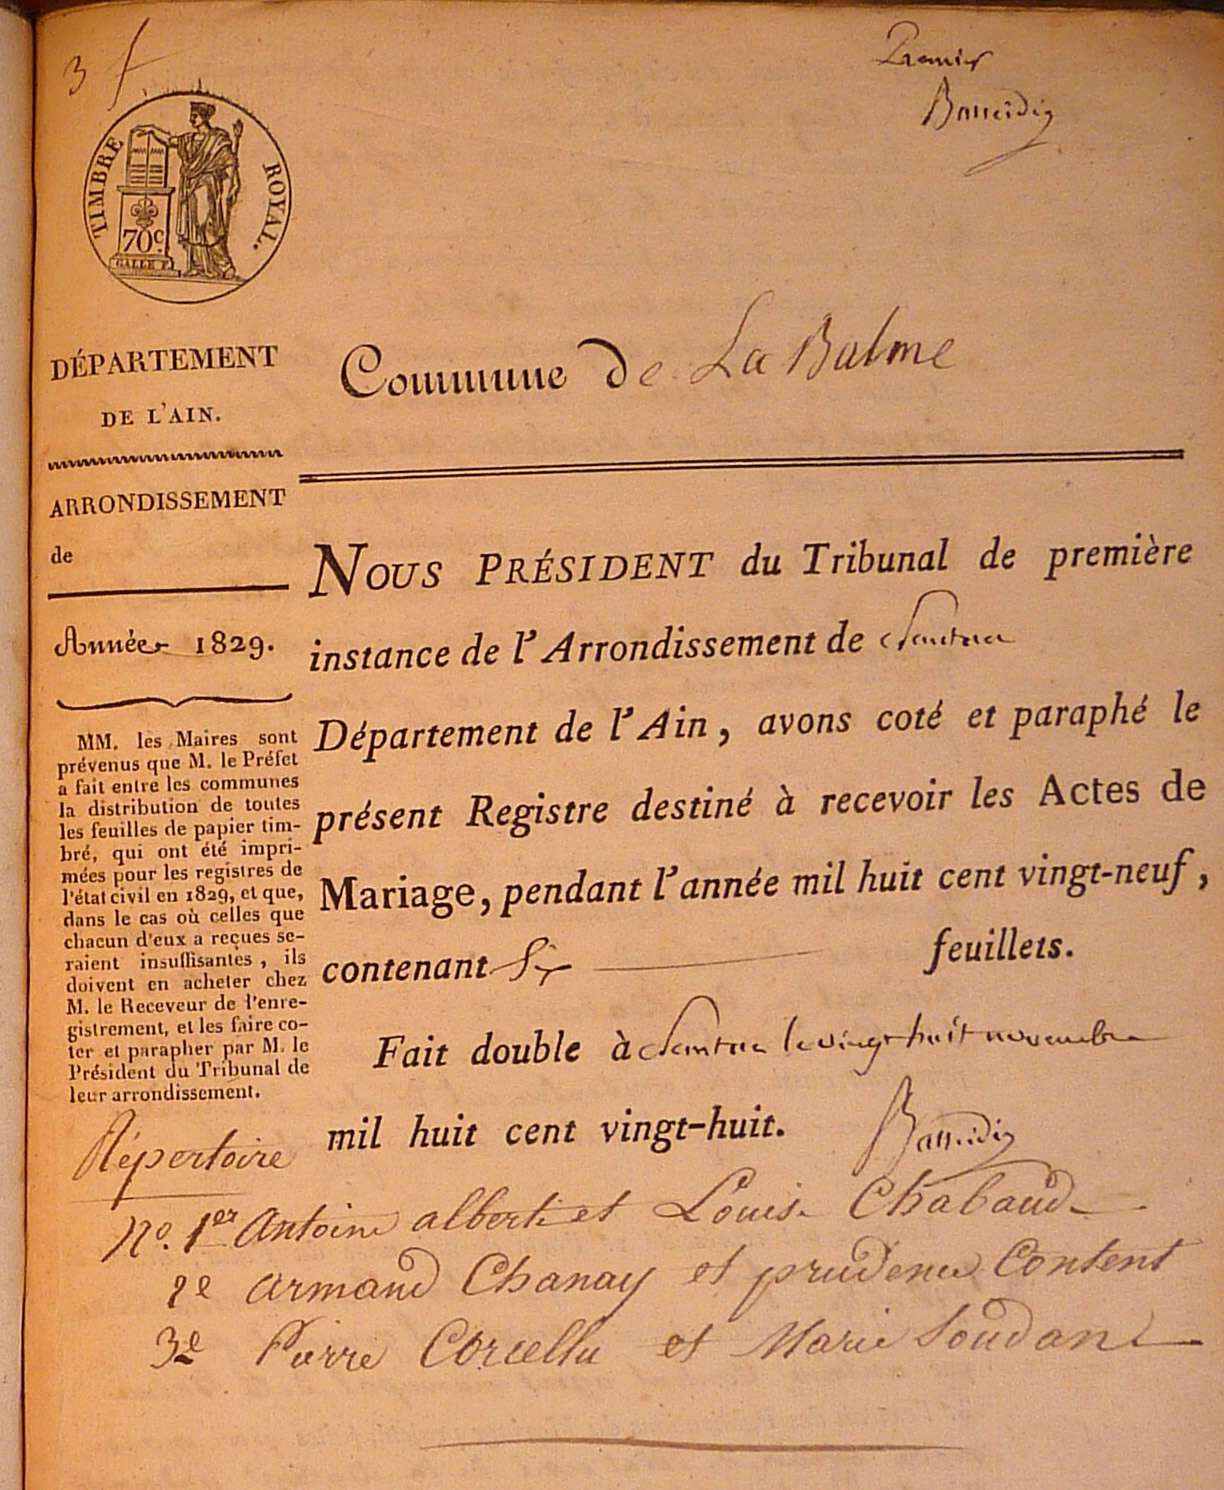 3 f.
Premier
TIMBRE ROYAL.
70c.
GALLE F.
DÉPARTEMENT
DE L'AIN.
ARRONDISSEMENT
de
Année 1829.
MM. les Maires sont
prévenus que M. le Préfet
a fait entre les communes
la distribution de toutes
les feuilles de papier tim-
bré, qui ont été impri-
mées pour les registres de
l'état civil en 1829, et que,
dans le cas où celles que
chacun d'eux a reçues se-
raient insuffisantes, ils
doivent en acheter chez
M. le Receveur de l'enre-
gistrement, et les faire co-
ter et parapher par M. le
Président du Tribunal de
leur arrondissement.
Commune de La Balme
NOUS PRÉSIDENT du Tribunal de première
instance de l'Arrondissement de Nantua
Département de l'Ain, avons coté et paraphé le
présent Registre destiné à recevoir les Actes de
Mariage, pendant l'année mil huit cent vingt-neuf,
contenant Six feuillets.
Fait double à Nantua le vingt huit novembre
mil huit cent vingt-huit.
Répertoire
No. 1er Antoine albert et Louise Chabaud
2e armand Chanay et prudence Content
3e Pierre Corcellu et Marie Soudan